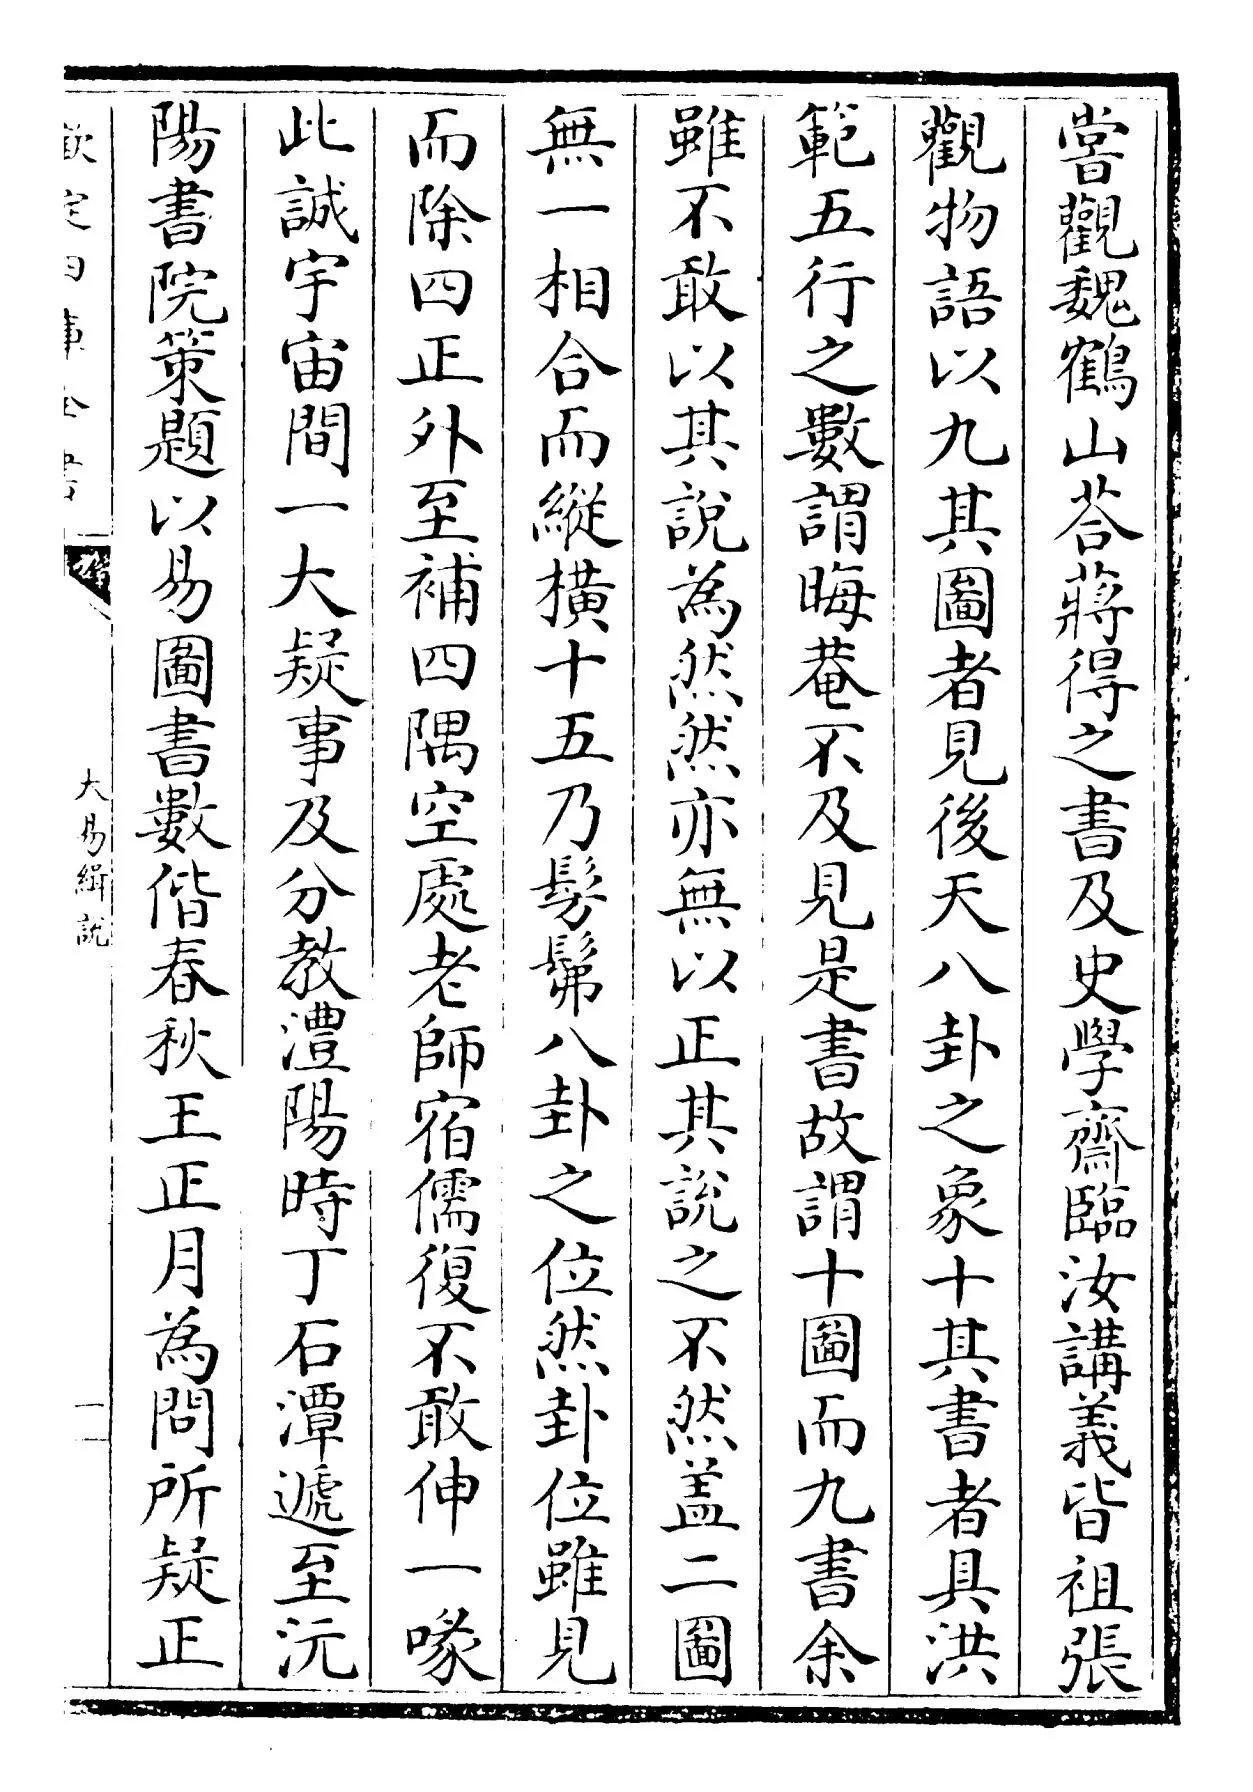 嘗觀魏鶴山荅蔣得之書及史學齋臨汝講義皆祖張
觀物語以九其圖者見後天八卦之象十其書者具洪
範五行之數謂晦菴不及見是書故謂十圖而九書余
雖不敢以其說為然然亦無以正其說之不然盖二圖
無一相合而縱橫十五乃髣髴八卦之位然卦位雖見
而除四正外至補四隅空處老師宿儒復不敢伸一喙
此誠宇宙間一大疑事及分教澧陽時丁石潭遞至沅
陽書院策題以易圖書數偕春秋王正月為問所疑正
欽定四庫全書
大易緝說
二